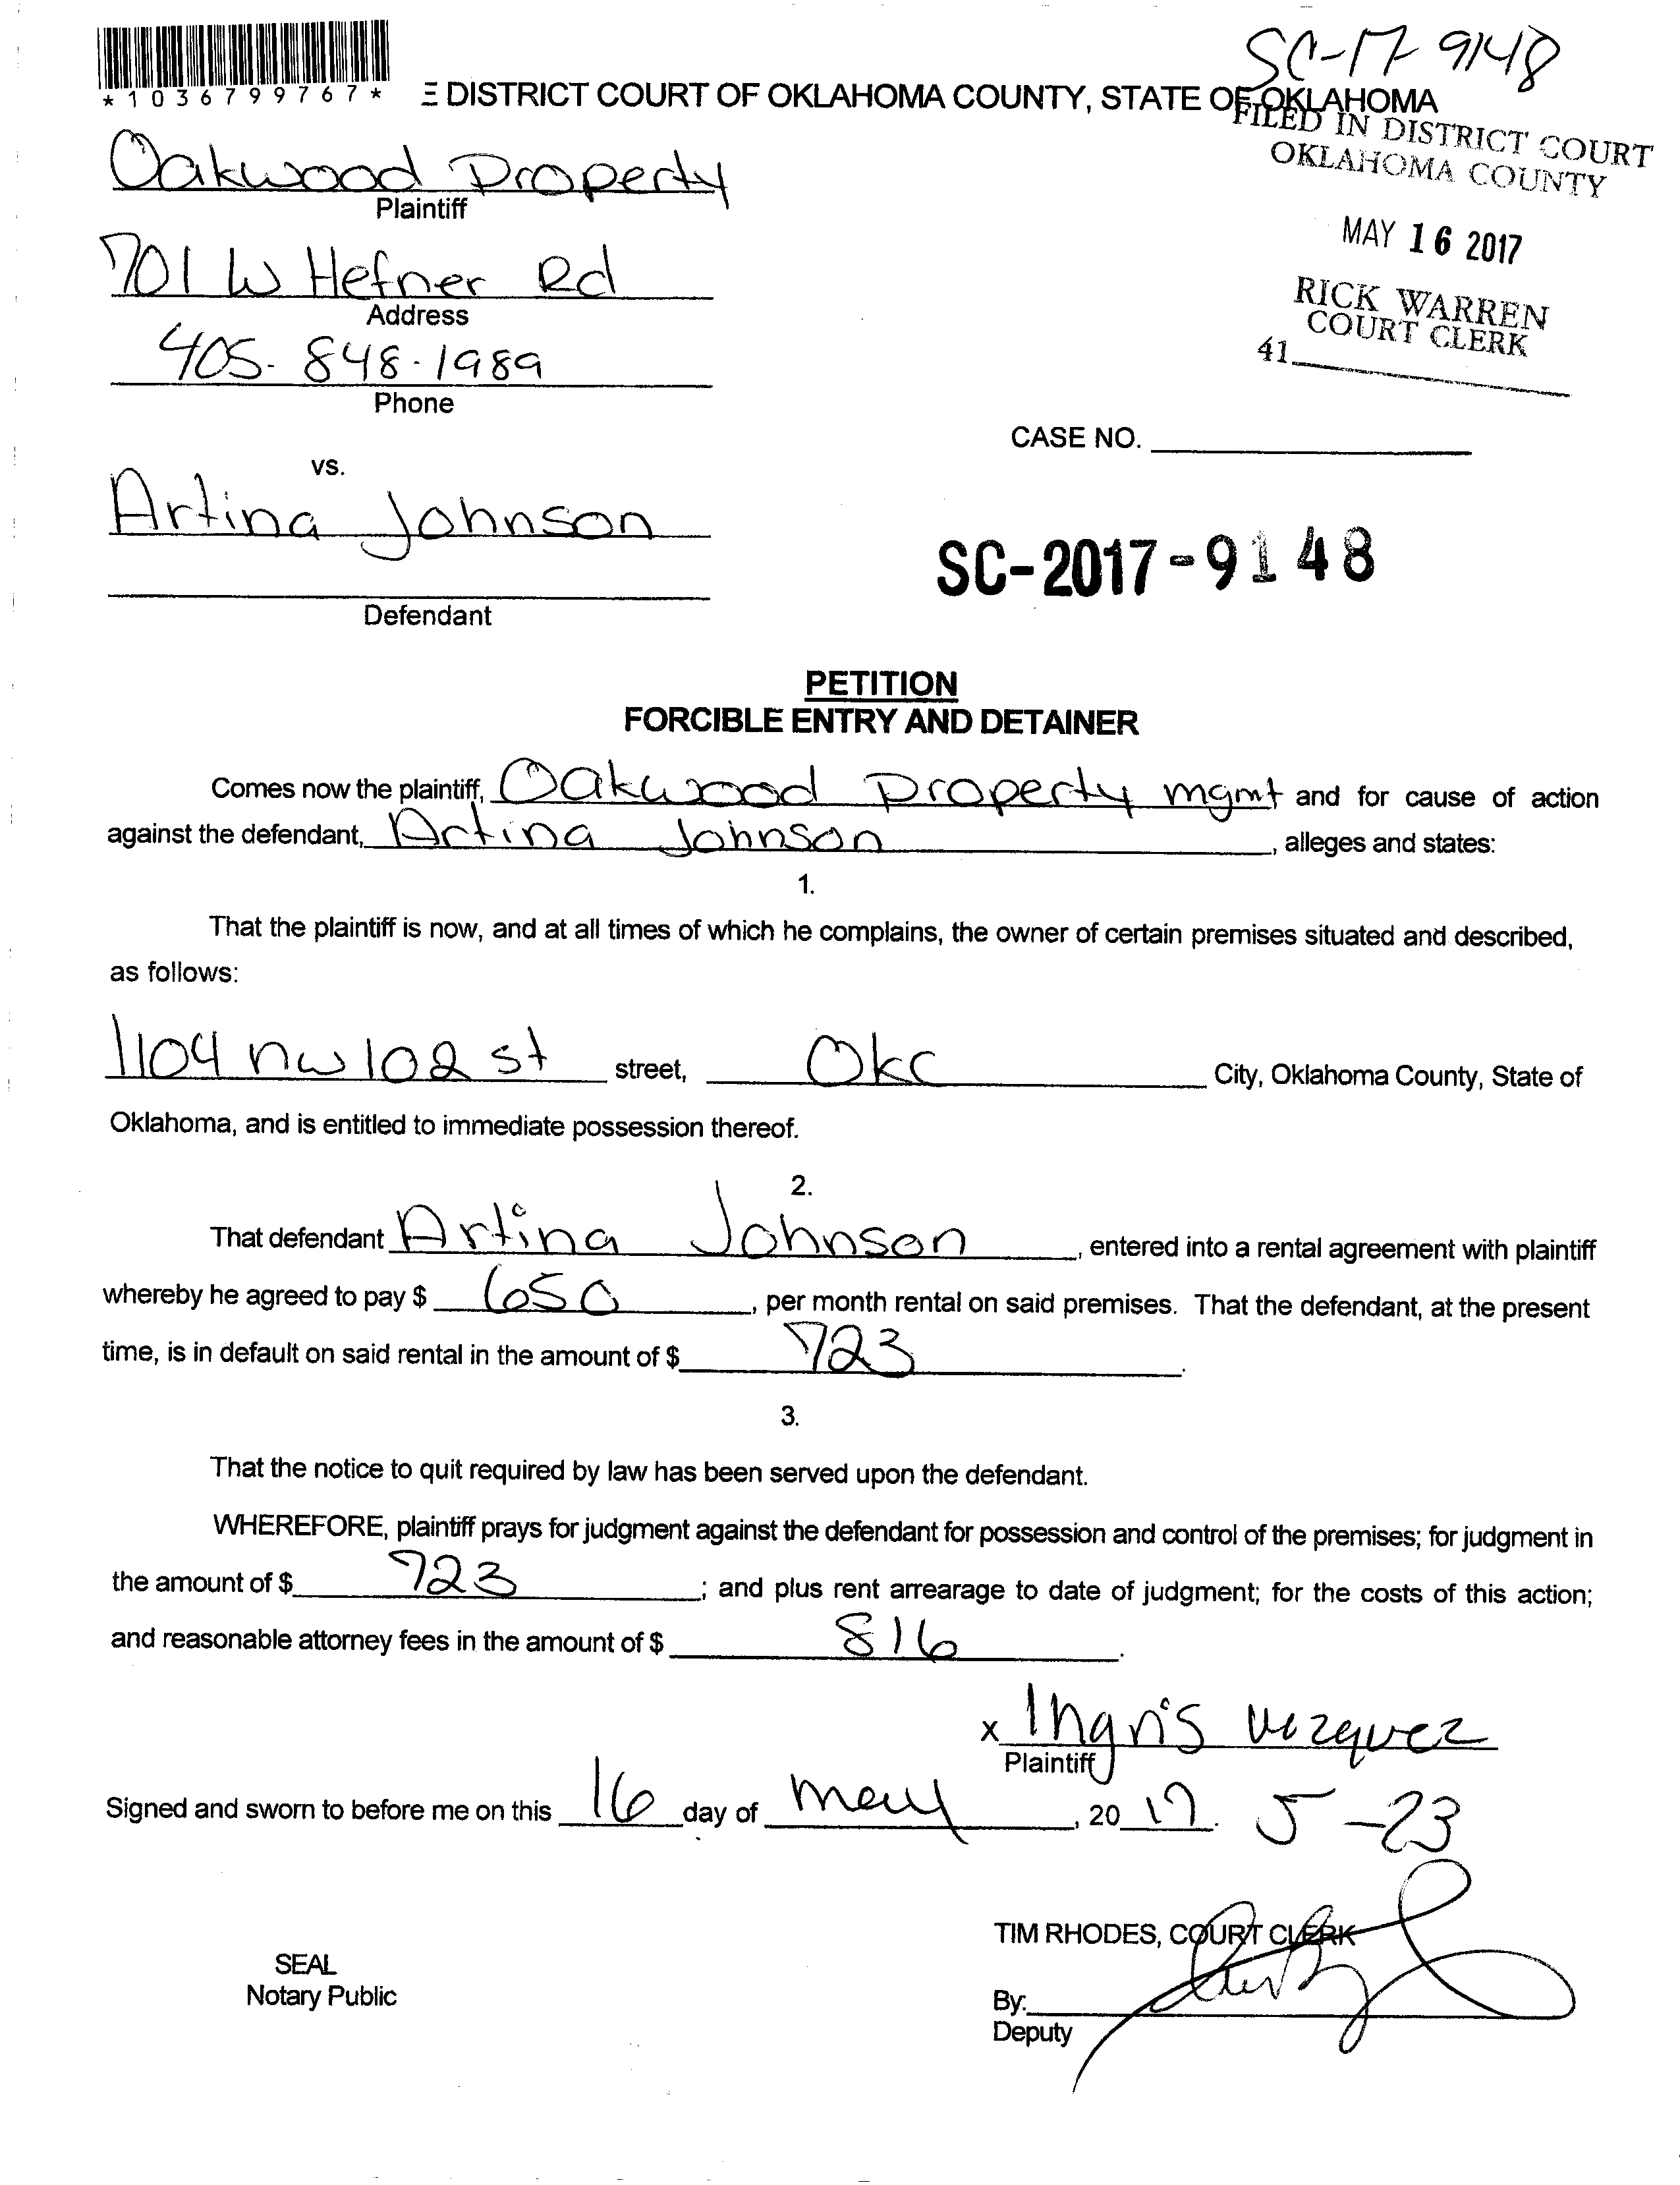 SC-17-9148
*1036799767*
E DISTRICT COURT OF OKLAHOMA COUNTY, STATE OF OKLAHOMA
FILED IN DISTRICT COURT
OKLAHOMA COUNTY
Oakwood Property
Plaintiff
MAY 16 2017
701 W Hefner Rd
Address
RICK WARREN
COURT CLERK
41
405-848-1989
Phone
CASE NO.
vs.
Artina Johnson
SC-2017-9148
Defendant
PETITION
FORCIBLE ENTRY AND DETAINER
Comes now the plaintiff, Oakwood Property mgmt and for cause of action
against the defendant, Artina Johnson, alleges and states:
1.
That the plaintiff is now, and at all times of which he complains, the owner of certain premises situated and described,
as follows:
1104 nw 102 st street, Okc City, Oklahoma County, State of
Oklahoma, and is entitled to immediate possession thereof.
2.
That defendant Artina Johnson, entered into a rental agreement with plaintiff
whereby he agreed to pay $ 650, per month rental on said premises. That the defendant, at the present
time, is in default on said rental in the amount of $ 723.
3.
That the notice to quit required by law has been served upon the defendant.
WHEREFORE, plaintiff prays for judgment against the defendant for possession and control of the premises; for judgment in
the amount of $ 723; and plus rent arrearage to date of judgment; for the costs of this action;
and reasonable attorney fees in the amount of $ 816.
x Ingris
Plaintiff
Signed and sworn to before me on this 16 day of may, 2017. 5-23
TIM RHODES, COURT CLERK
SEAL
Notary Public
By:
Deputy